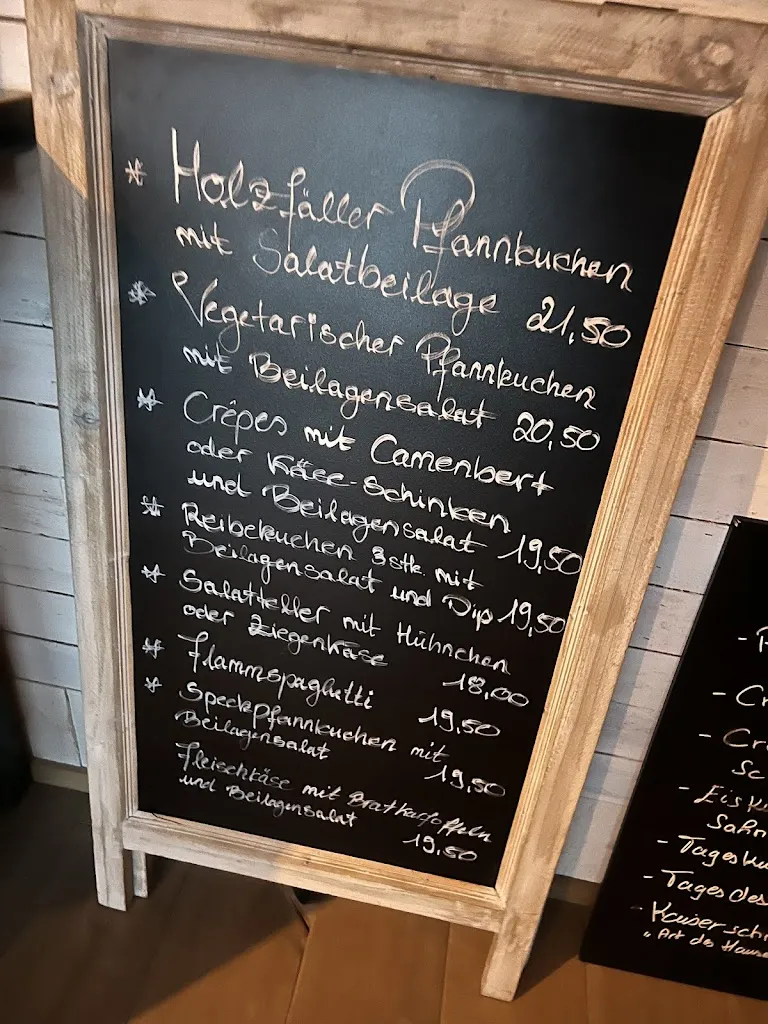 * Holzfäller Pfannkuchen
mit Salatbeilage 21,50
* Vegetarischer Pfannkuchen
mit Beilagensalat 20,50
* Crêpes mit Camenbert
oder Käse-Schinken
und Beilagensalat 19,50
* Reibekuchen 3 Stk. mit
Beilagensalat und Dip 19,50
* Salatteller mit Hühnchen
oder Ziegenkäse 18,00
* Flammspaghetti 19,50
* Speckpfannkuchen mit
Beilagensalat 19,50
Fleischkäse mit Bratkartoffeln
und Beilagensalat 19,50
- Eis
Sahn
- Tages
- Tages des
- Kaiser
"Art des Hause